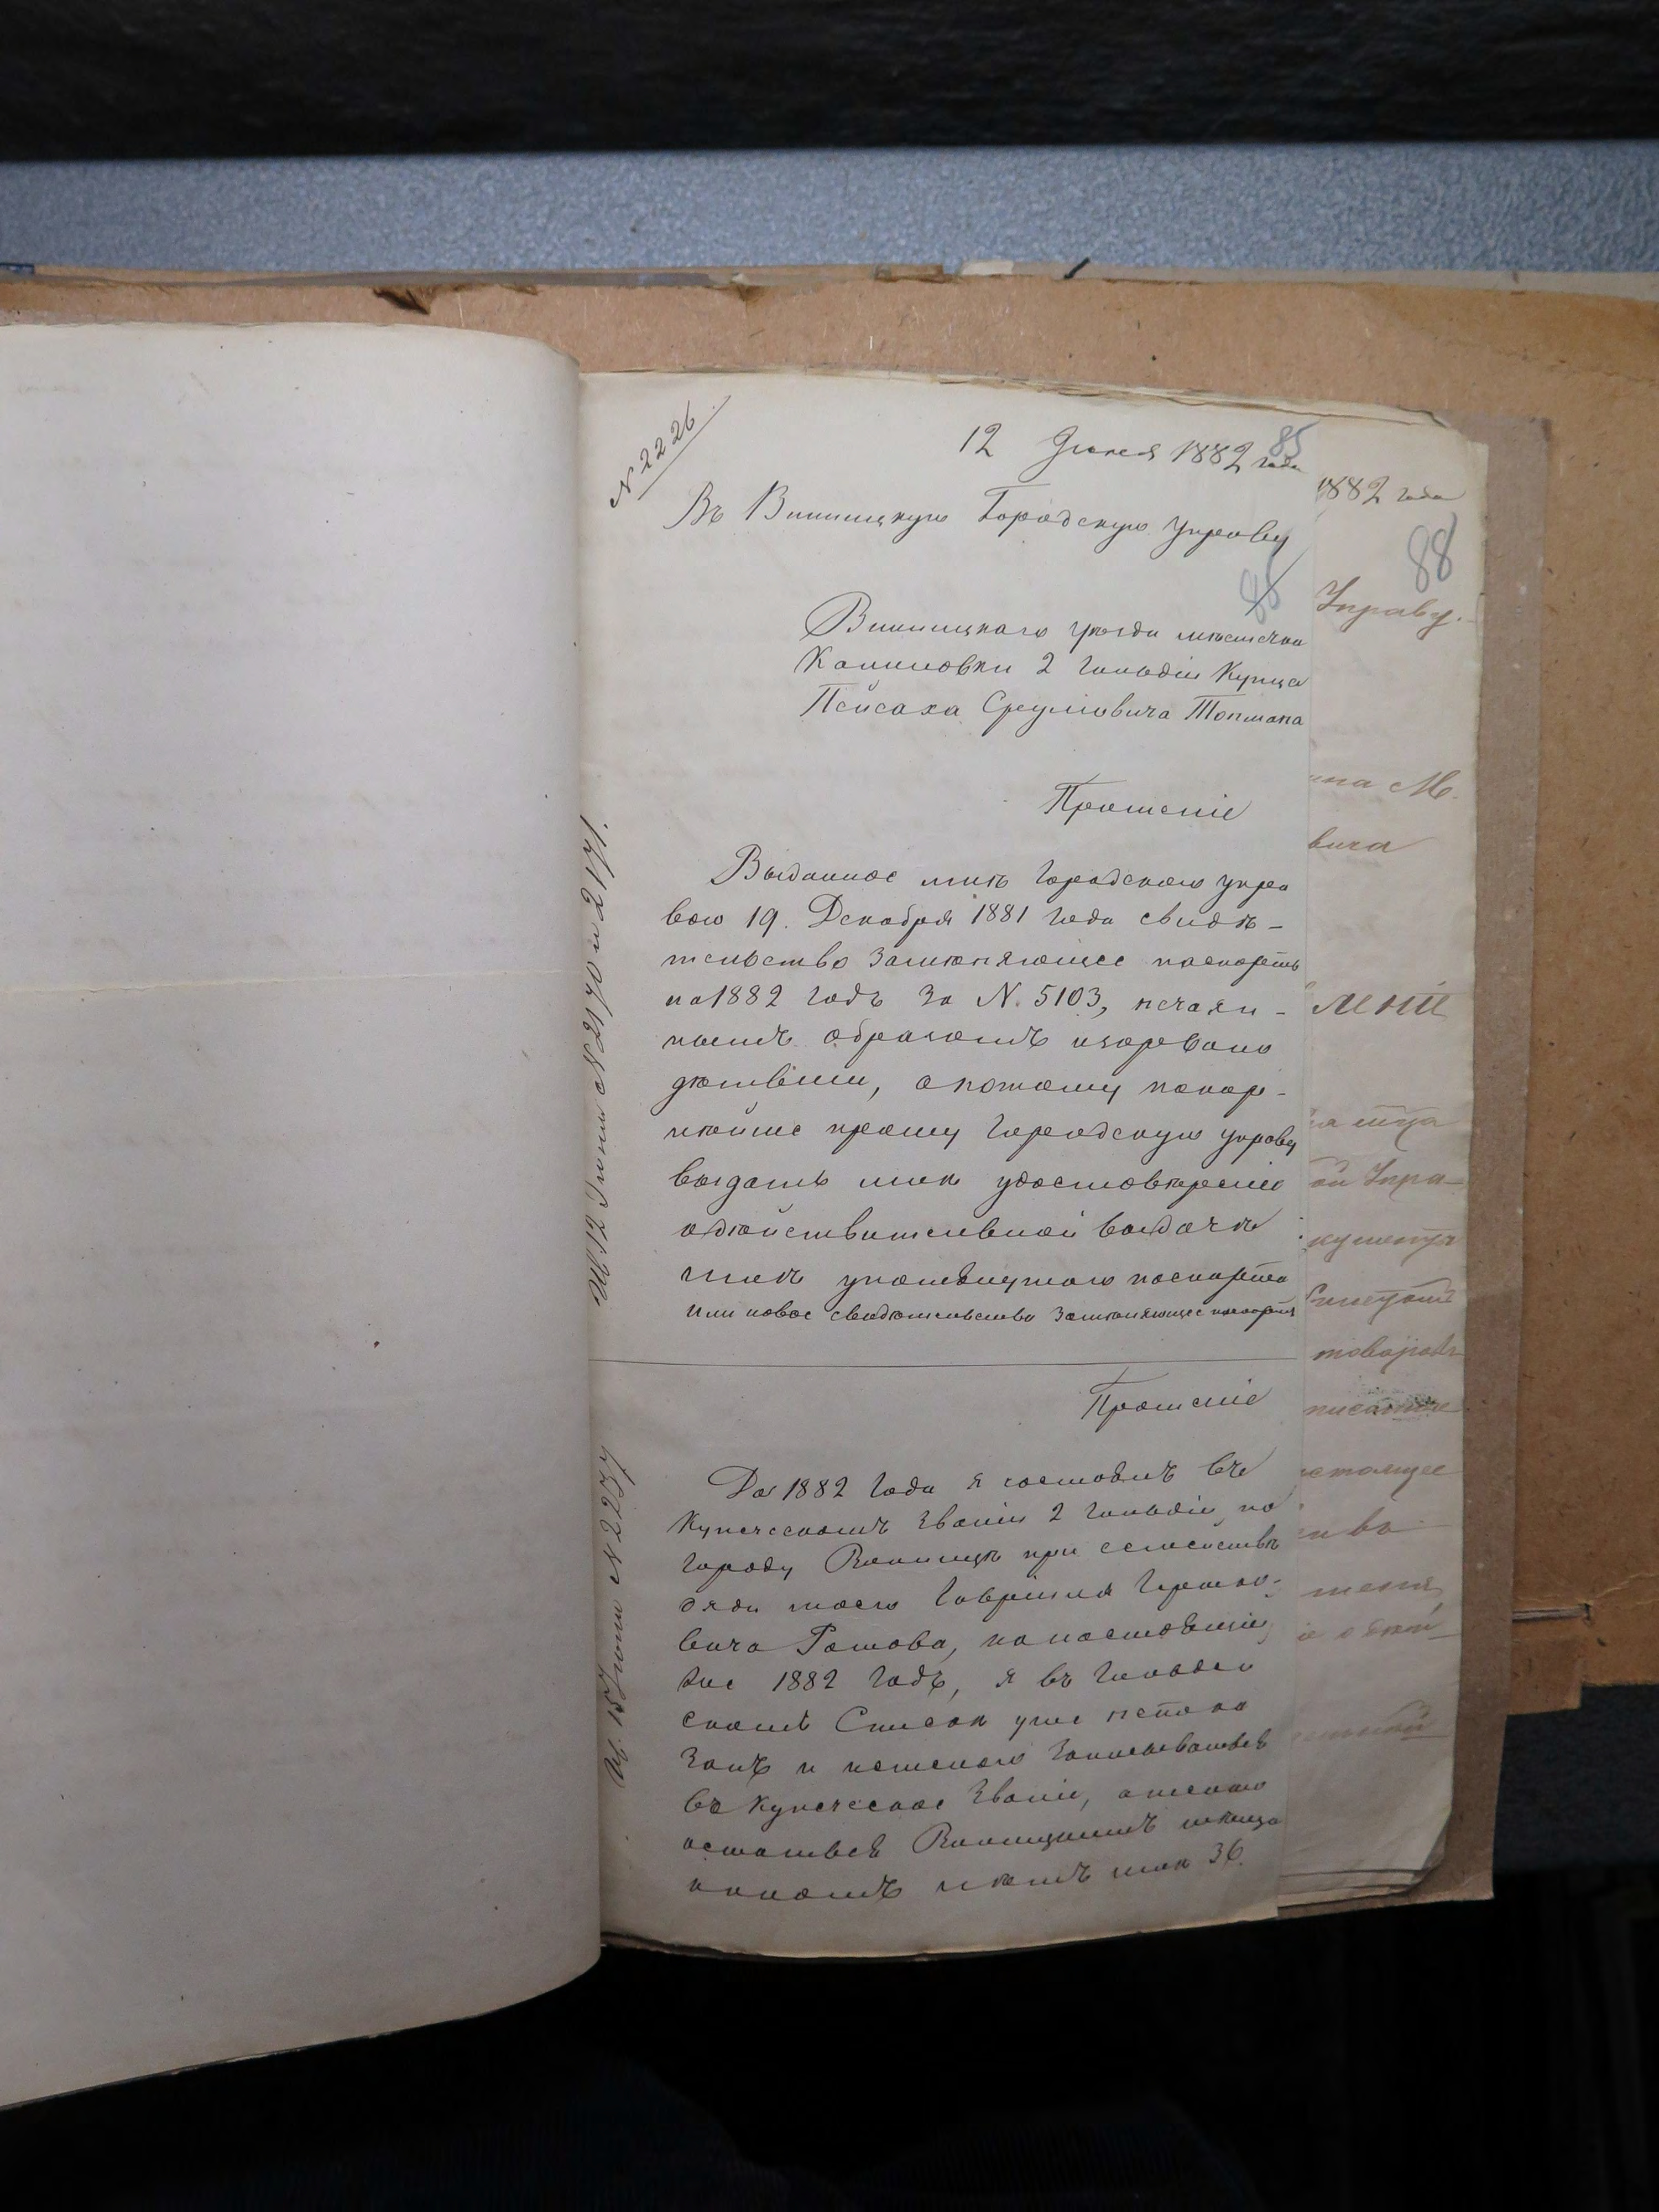 N 2226
12 Июня 1882 года
85
Въ Винницкую Городскую Управу
Винницкаго уѣзда мѣстечка
Калиновки 2 гильдіи Купца
Пейсаха Срулиовича Токмака
Прошеніе
Выданное мнѣ Городскою упра
вою 19. Декабря 1881 года свидѣ-
тельство замѣняющее паспортъ
на 1882 годъ за N. 5103, нечаян-
нымъ образомъ изорвано
дѣтьми, а потому покор-
нѣйше прошу Городскую управу
выдать мнѣ удостовѣреніе
о дѣйствительной выдачѣ
мнѣ упомянутого паспорта
или новое свидѣтельство замѣняющее паспортъ
Ис. 12 Июня N 2170 и 2171.
Прошеніе
До 1882 года я состоялъ въ
Купеческомъ званіи 2 гильдіи, по
городу Винницѣ при семействѣ
дяди моего Гавріила
вича на настоящій
же 1882 годъ, я въ
Списокъ уже не
занъ и не желаю записываться
въ купеческое званіе, а желаю
остаться Винницкимъ мѣща
ниномъ
Ис. 15 Июня N 2237
1882 года
88
Управу.
на М.
вича
ой Упра-